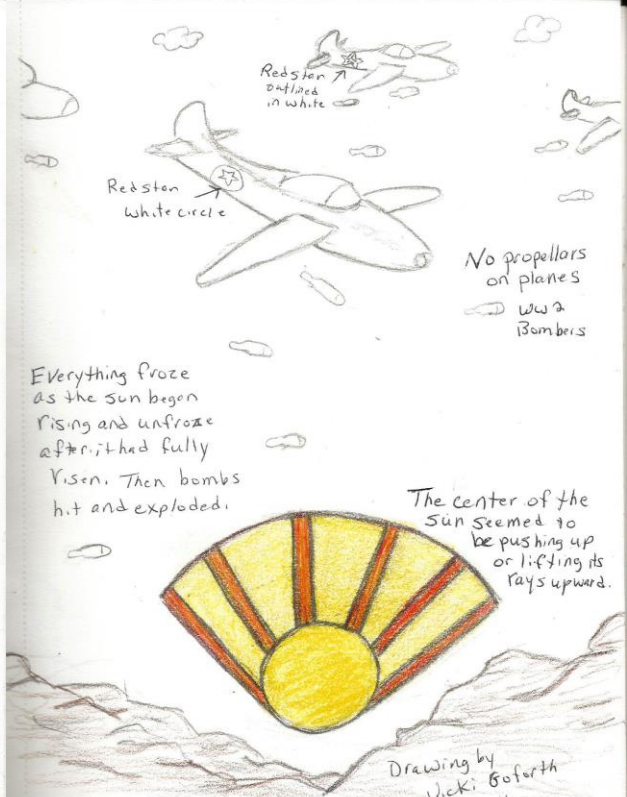 Red star
outlined
in white
Red star
white circle
No propellars
on planes
WW2
Bombers
Everything froze
as the sun began
rising and unfroze
after it had fully
risen. Then bombs
hit and exploded.
The center of the
sun seemed to
be pushing up
or lifting its
rays upward.
Drawing by
Vicki Goforth